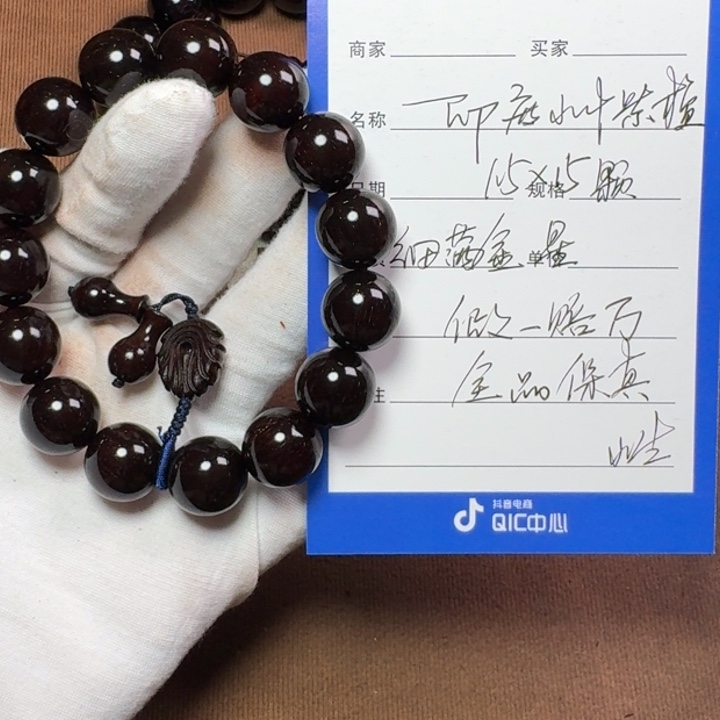 商家 买家
名称 印度小叶紫檀
日期 规格
1.5×15颗
细满金星
假一赔万
全品保真
抖音电商
QIC中心